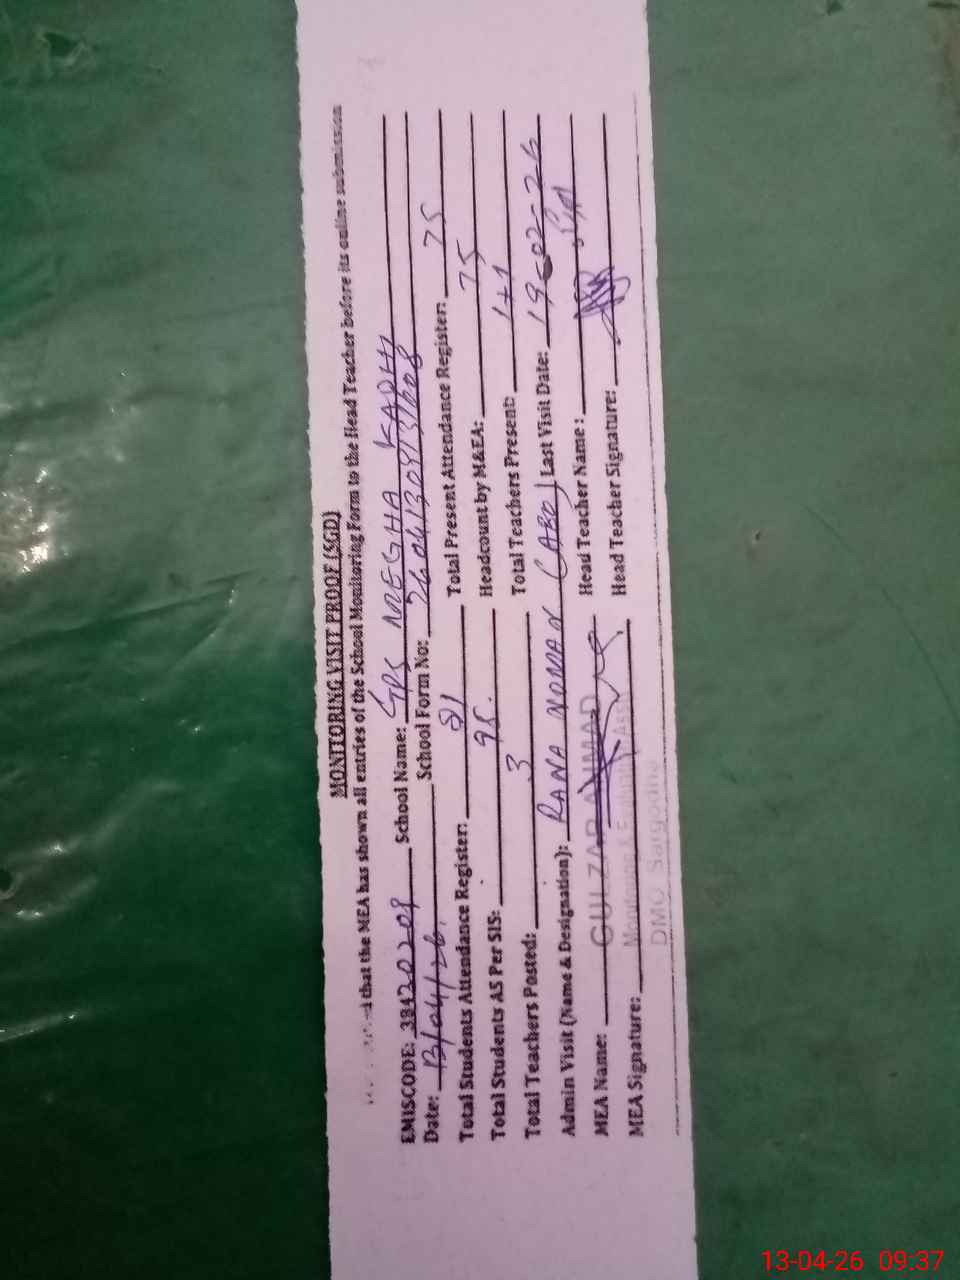 MONITORING VISIT PROOF (SGD)
that the MEA has shown all entries of the School Monitoring Form to the Head Teacher before its online submission
EMISCODE: 38420208 School Name: GPS MEGHA KADHI
Date: 13/04/26. School Form No: 26041309131608
Total Students Attendance Register: 91 Total Present Attendance Register: 75
Total Students AS Per SIS: 95. Headcount by M&EA: 75
Total Teachers Posted: 3 Total Teachers Present: 1+1
Admin Visit (Name & Designation): RANA NOMAN (AEO) Last Visit Date: 19-02-26
MEA Name: GULZAR AHMAD Head Teacher Name:
Monitoring & Evaluation Asst
MEA Signature: Head Teacher Signature:
DMO Sargodha
13-04-26 09:37